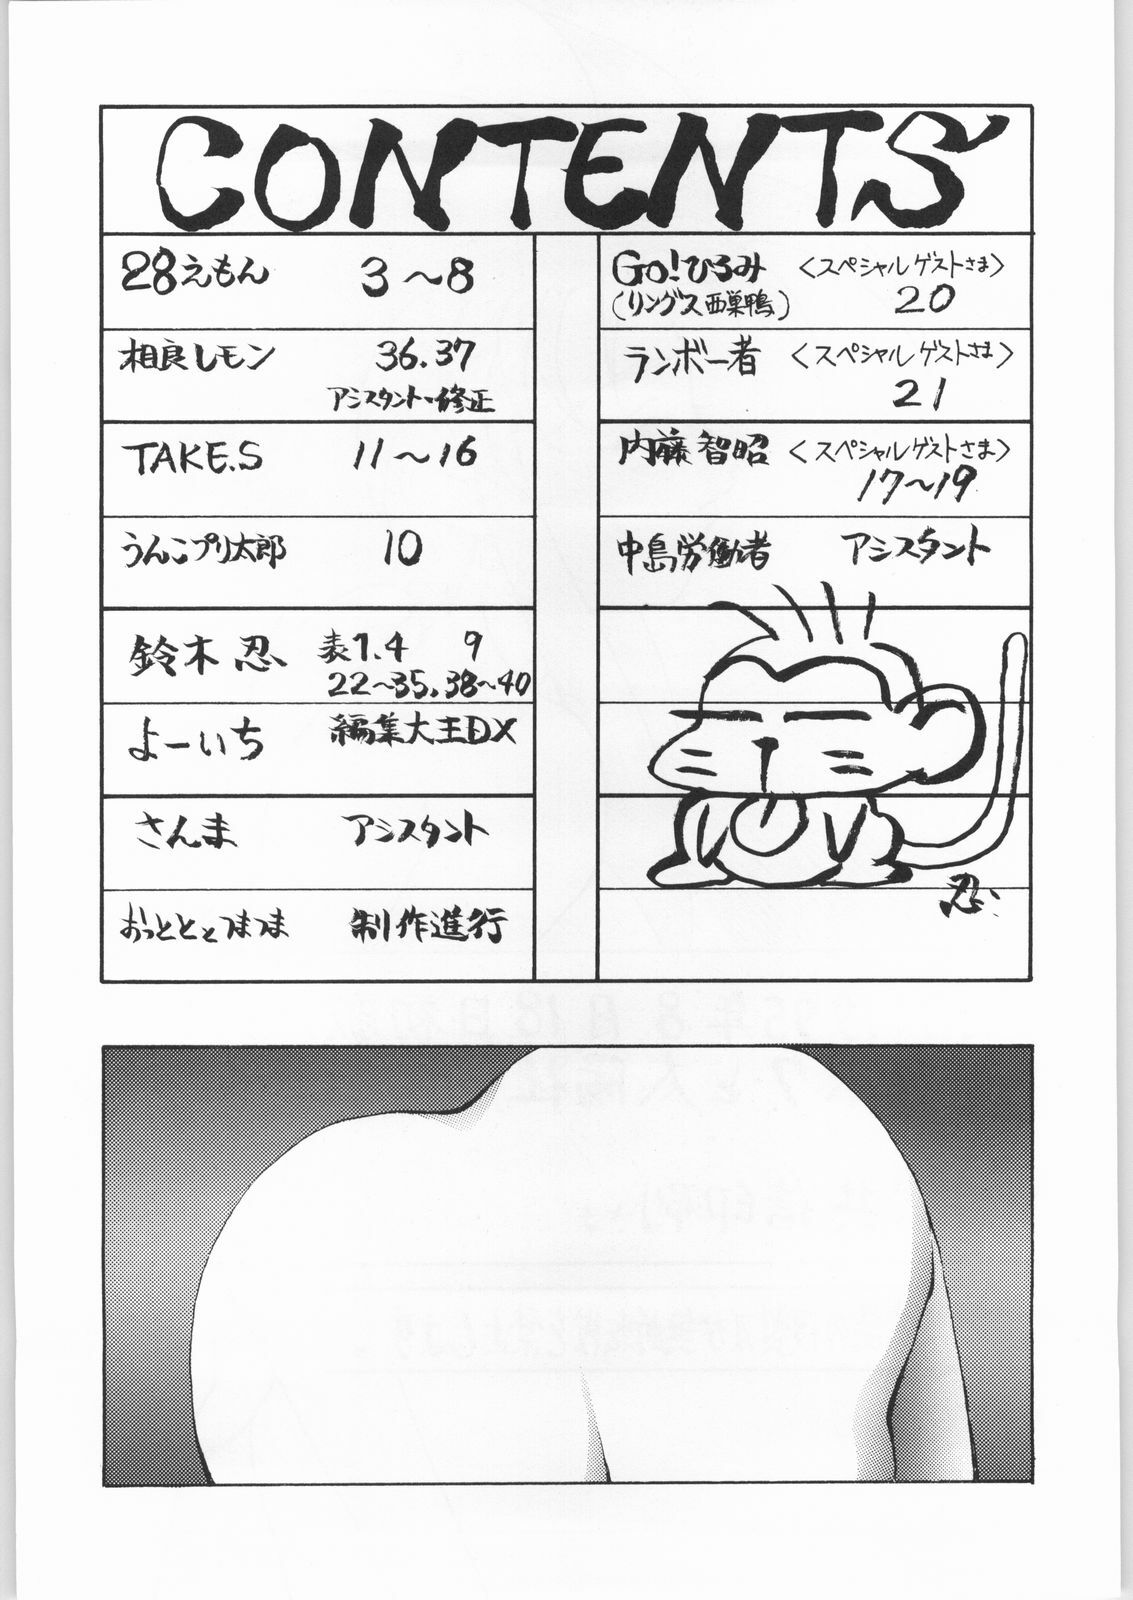 CONTENTS
28えもん 3～8
相良レモン 36.37
アシスタント・修正
TAKE.S 11～16
うんこプリ太郎 10
鈴木 忍 表1.4 9
22～35.38～40
よーいち 編集大王DX
さんま アシスタント
おっととっとつまつま 制作進行
Go!ひろみ 〈スペシャルゲストさま〉
(リングス西巣鴨) 20
ランボー者 〈スペシャルゲストさま〉
21
内藤智昭 〈スペシャルゲストさま〉
17～19
中島労働者 アシスタント
忍